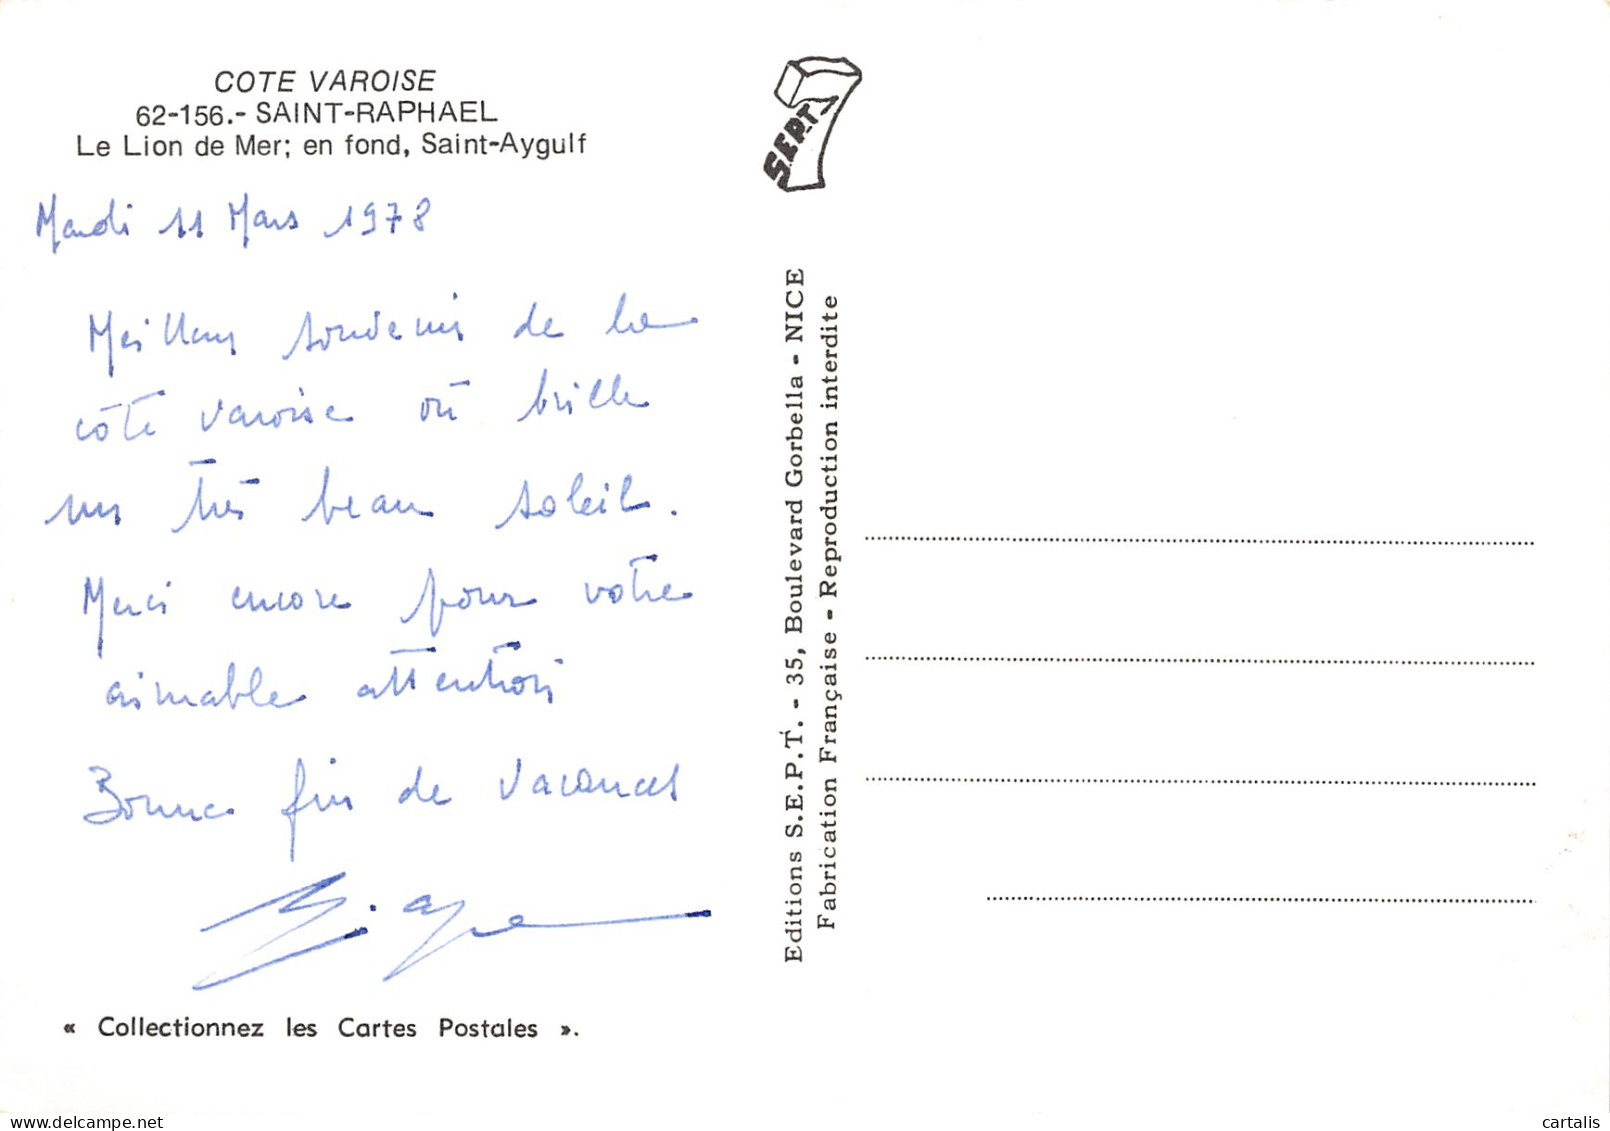 COTE VAROISE
62-156.- SAINT-RAPHAEL
Le Lion de Mer; en fond, Saint-Aygulf
Mardi 11 Mars 1978
Meilleur souvenir de la
côte varoise où brille
un très beau soleil.
Merci encore pour votre
aimable attention
Bonne fin de vacances
« Collectionnez les Cartes Postales ».
7
S.E.P.T.
Editions S.E.P.T. - 35, Boulevard Gorbella - NICE
Fabrication Française - Reproduction interdite
delcampe.net
cartalis